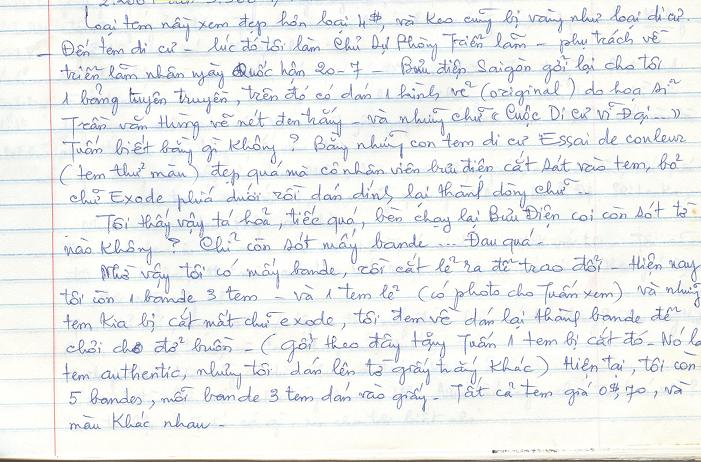 Loại tem nầy xem đẹp hơn loại 4$, và Keo cũng bị vàng như loại di cư.
- Đến tem di cư - lúc đó tôi làm Chủ Sự Phòng Triển lãm - phụ trách về
triển lãm nhân ngày Quốc hận 20-7 - Bưu điện Saigon gởi lại cho tôi
1 bảng tuyên truyền, trên đó có dán 1 hình vẽ (original) do họa sĩ
Trần văn Thừng vẽ nét đen trắng - và những chữ « Cuộc Di cư vĩ Đại...»
Tuấn biết bằng gì không? Bằng những con tem di cư Essai de couleur
(tem thử màu) đẹp quá mà cô nhân viên bưu điện cắt sát vào tem, bỏ
chữ Exode phiá dưới rồi dán dính lại thành dòng chữ...
Tôi thấy vậy tá hỏa, tiếc quá, bèn chạy lại Bưu Điện coi còn sót tờ
nào không? Chỉ còn sót mấy bande ... Đau quá.
Nhờ vậy tôi có mấy bande, rồi cắt lẻ ra để trao đổi - Hiện nay
tôi còn 1 bande 3 tem - và 1 tem lẻ (có photo cho Tuấn xem) và những
tem kia bị cắt mất chữ exode, tôi đem về dán lại thành bande để
chơi cho đỡ buồn - (gởi theo đây tặng Tuấn 1 tem bị cắt đó - Nó là
tem authentic, nhưng tôi dán lên tờ giấy trắng khác) Hiện tại, tôi còn
5 bandes, mỗi bande 3 tem dán vào giấy - Tất cả tem giá 0$,70, và
màu Khác nhau -